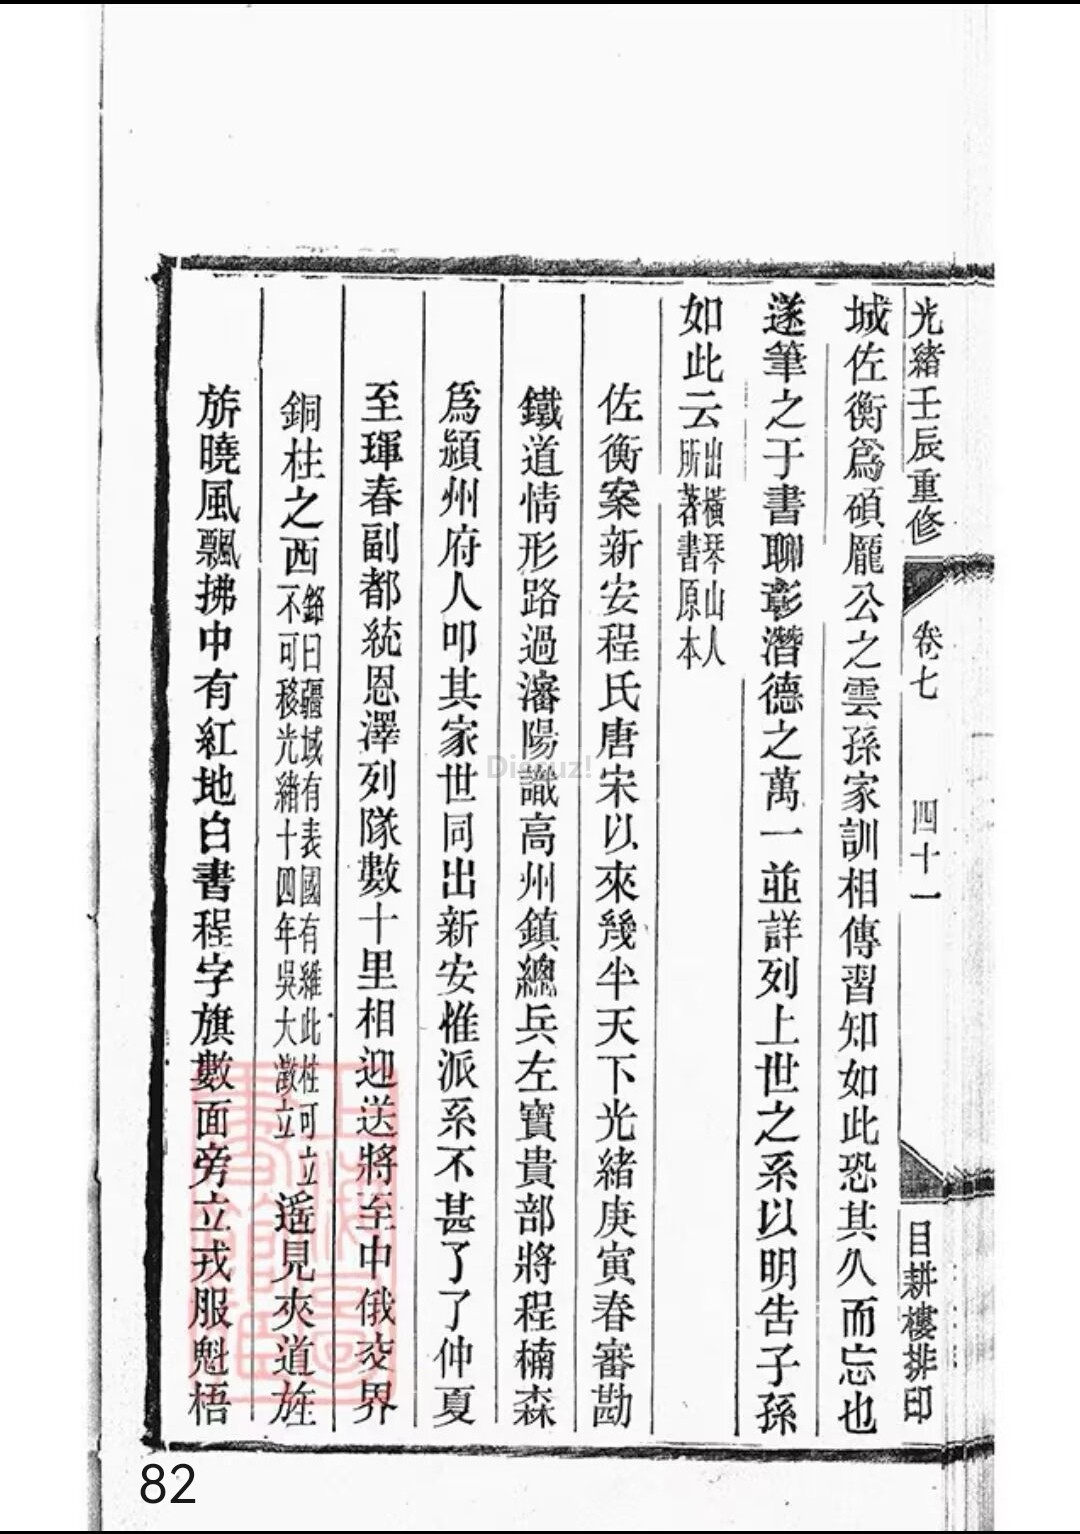 光緒壬辰重修 卷七 四十一 目耕樓排印
城佐衡爲碩龐公之雲孫家訓相傳習知如此恐其久而忘也
遂筆之于書聊彰潛德之萬一並詳列上世之系以明告子孫
如此云出橫琴山人所著書原本
佐衡案新安程氏唐宋以來幾半天下光緒庚寅春審勘
鐵道情形路過瀋陽識高州鎮總兵左寶貴部將程楠森
爲潁州府人叩其家世同出新安惟派系不甚了了仲夏
至琿春副都統恩澤列隊數十里相迎送將至中俄交界
銅柱之西銘曰疆域有表國有維此柱可立不可移光緒十四年吳大澂立遥見夾道旌
旂曉風飄拂中有紅地白書程字旗數面旁立戎服魁梧
Discuz!
82